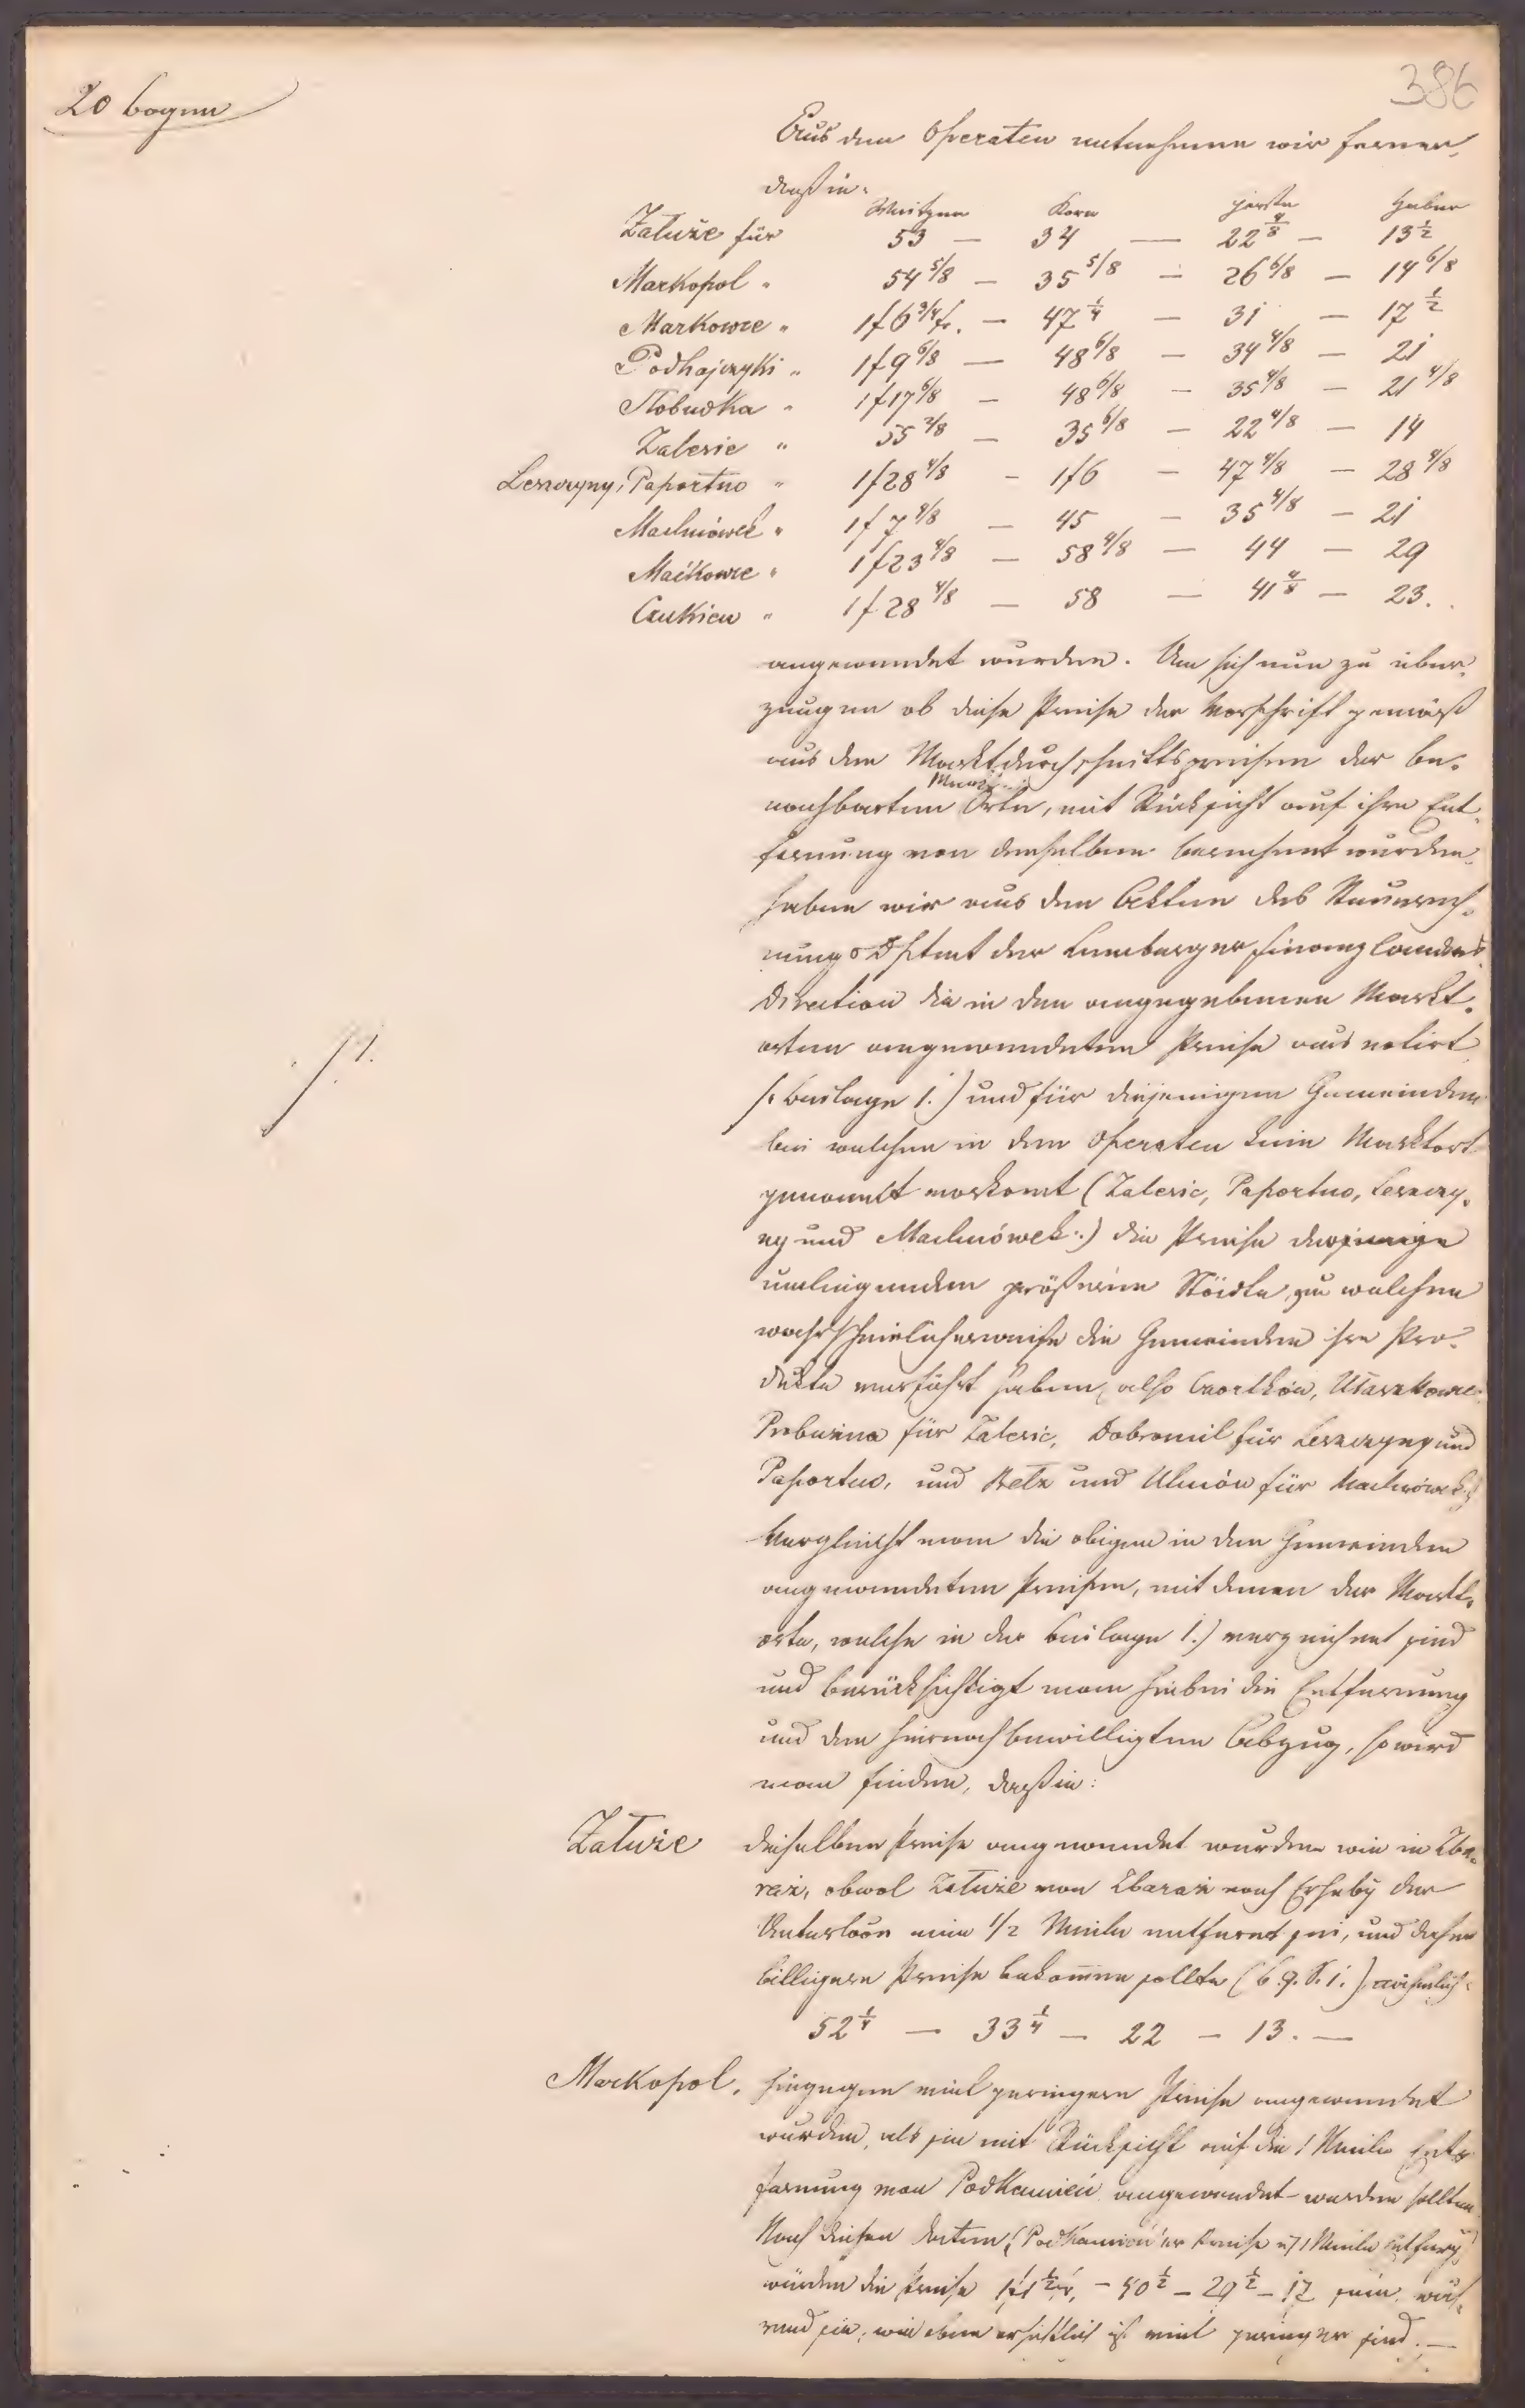 386
20 bogen
Aus den Operaten entnehmen wir ferner,
daß in:
Weitzen Korn gerste Haber
Załuże für 53 — 34 — 22 4/8 — 13 1/2
Markopol " 54 5/8 — 35 5/8 — 26 6/8 — 14 6/8
Markowce " 1f 6 3/4 kr. — 47 1/4 — 31 — 17 1/2
Podhajczyki " 1f 9 6/8 — 48 6/8 — 34 4/8 — 21
Słobudka " 1f 17 6/8 — 48 6/8 — 35 4/8 — 21 4/8
Zalesie " 55 2/8 — 35 6/8 — 22 4/8 — 14
Leszczyny, Paportno " 1f 28 4/8 — 1f 6 — 47 4/8 — 28 4/8
Machnówek " 1f 7 4/8 — 45 — 35 4/8 — 21
Maćkowce " 1f 23 4/8 — 58 4/8 — 44 — 29
Czukiew " 1f 28 4/8 — 58 — 41 4/8 — 23.
angewendet wurden. Um sich nun zu über-
zeugen ob diese Preise der Vorschrift gemäß
aus den Marktdurchschnittspreisen der be-
nachbarten Orte, mit Rücksicht auf ihre Ent-
fernung von denselben berechnet wurden,
haben wir aus den Akten des
der Lemberger Finanz Landes
Direction die in den angegebenen Markt-
orten angewendeten Preise aus notirt
/1.
(: Beilage 1.) und für diejenigen Gemeinden
bei welchen in den Operaten kein Marktort
genannt vorkomt (Zalesie, Paportno, Leszczy-
ny und Machnówek:) die Preise derjenige
umliegenden größeren Städte, zu welchen
wahrscheinlicherweise die Gemeinden ihre Pro-
dukte verführt haben, also Czortków, Ułaszkowce
Probużna für Zalesie, Dobromil für Leszczyny und
Paportno, und Bełz und Uhnów für Machnówek,
Vergleicht man die obigen in den Gemeinden
angewendeten Preisen, mit denen der Markt-
orte, welche in der Beilage 1.) verzeichnet sind
und berücksichtigt man hiebei die Entfernung
und den hiernach bewilligten Abzug, so wird
man finden, daß in:
Załuże dieselben Preise angewendet wurden wie in Zba-
raż, obwol Załuże von Zbaraż nach Erheby der
1/2 Meile entfernt sei, und daher
billigere Preise bekommen sollte
52 1/4 — 33 1/4 — 22 — 13. —
Markopol, hingegen viel geringere Preise angewendet
wurden, als sie mit Rücksicht auf die 1 Meile Ent-
fernung von Podkamień angewendet werden sollten
Nach diesen Daten, (Podkamień'er Preise u. 1 Meile Entferng)
würden die Preise 1f 1 1/2 kr. — 40 1/2 — 29 1/2 — 17 sein, wäh-
rend sie, wie oben ersichtlich ist viel geringer sind. —